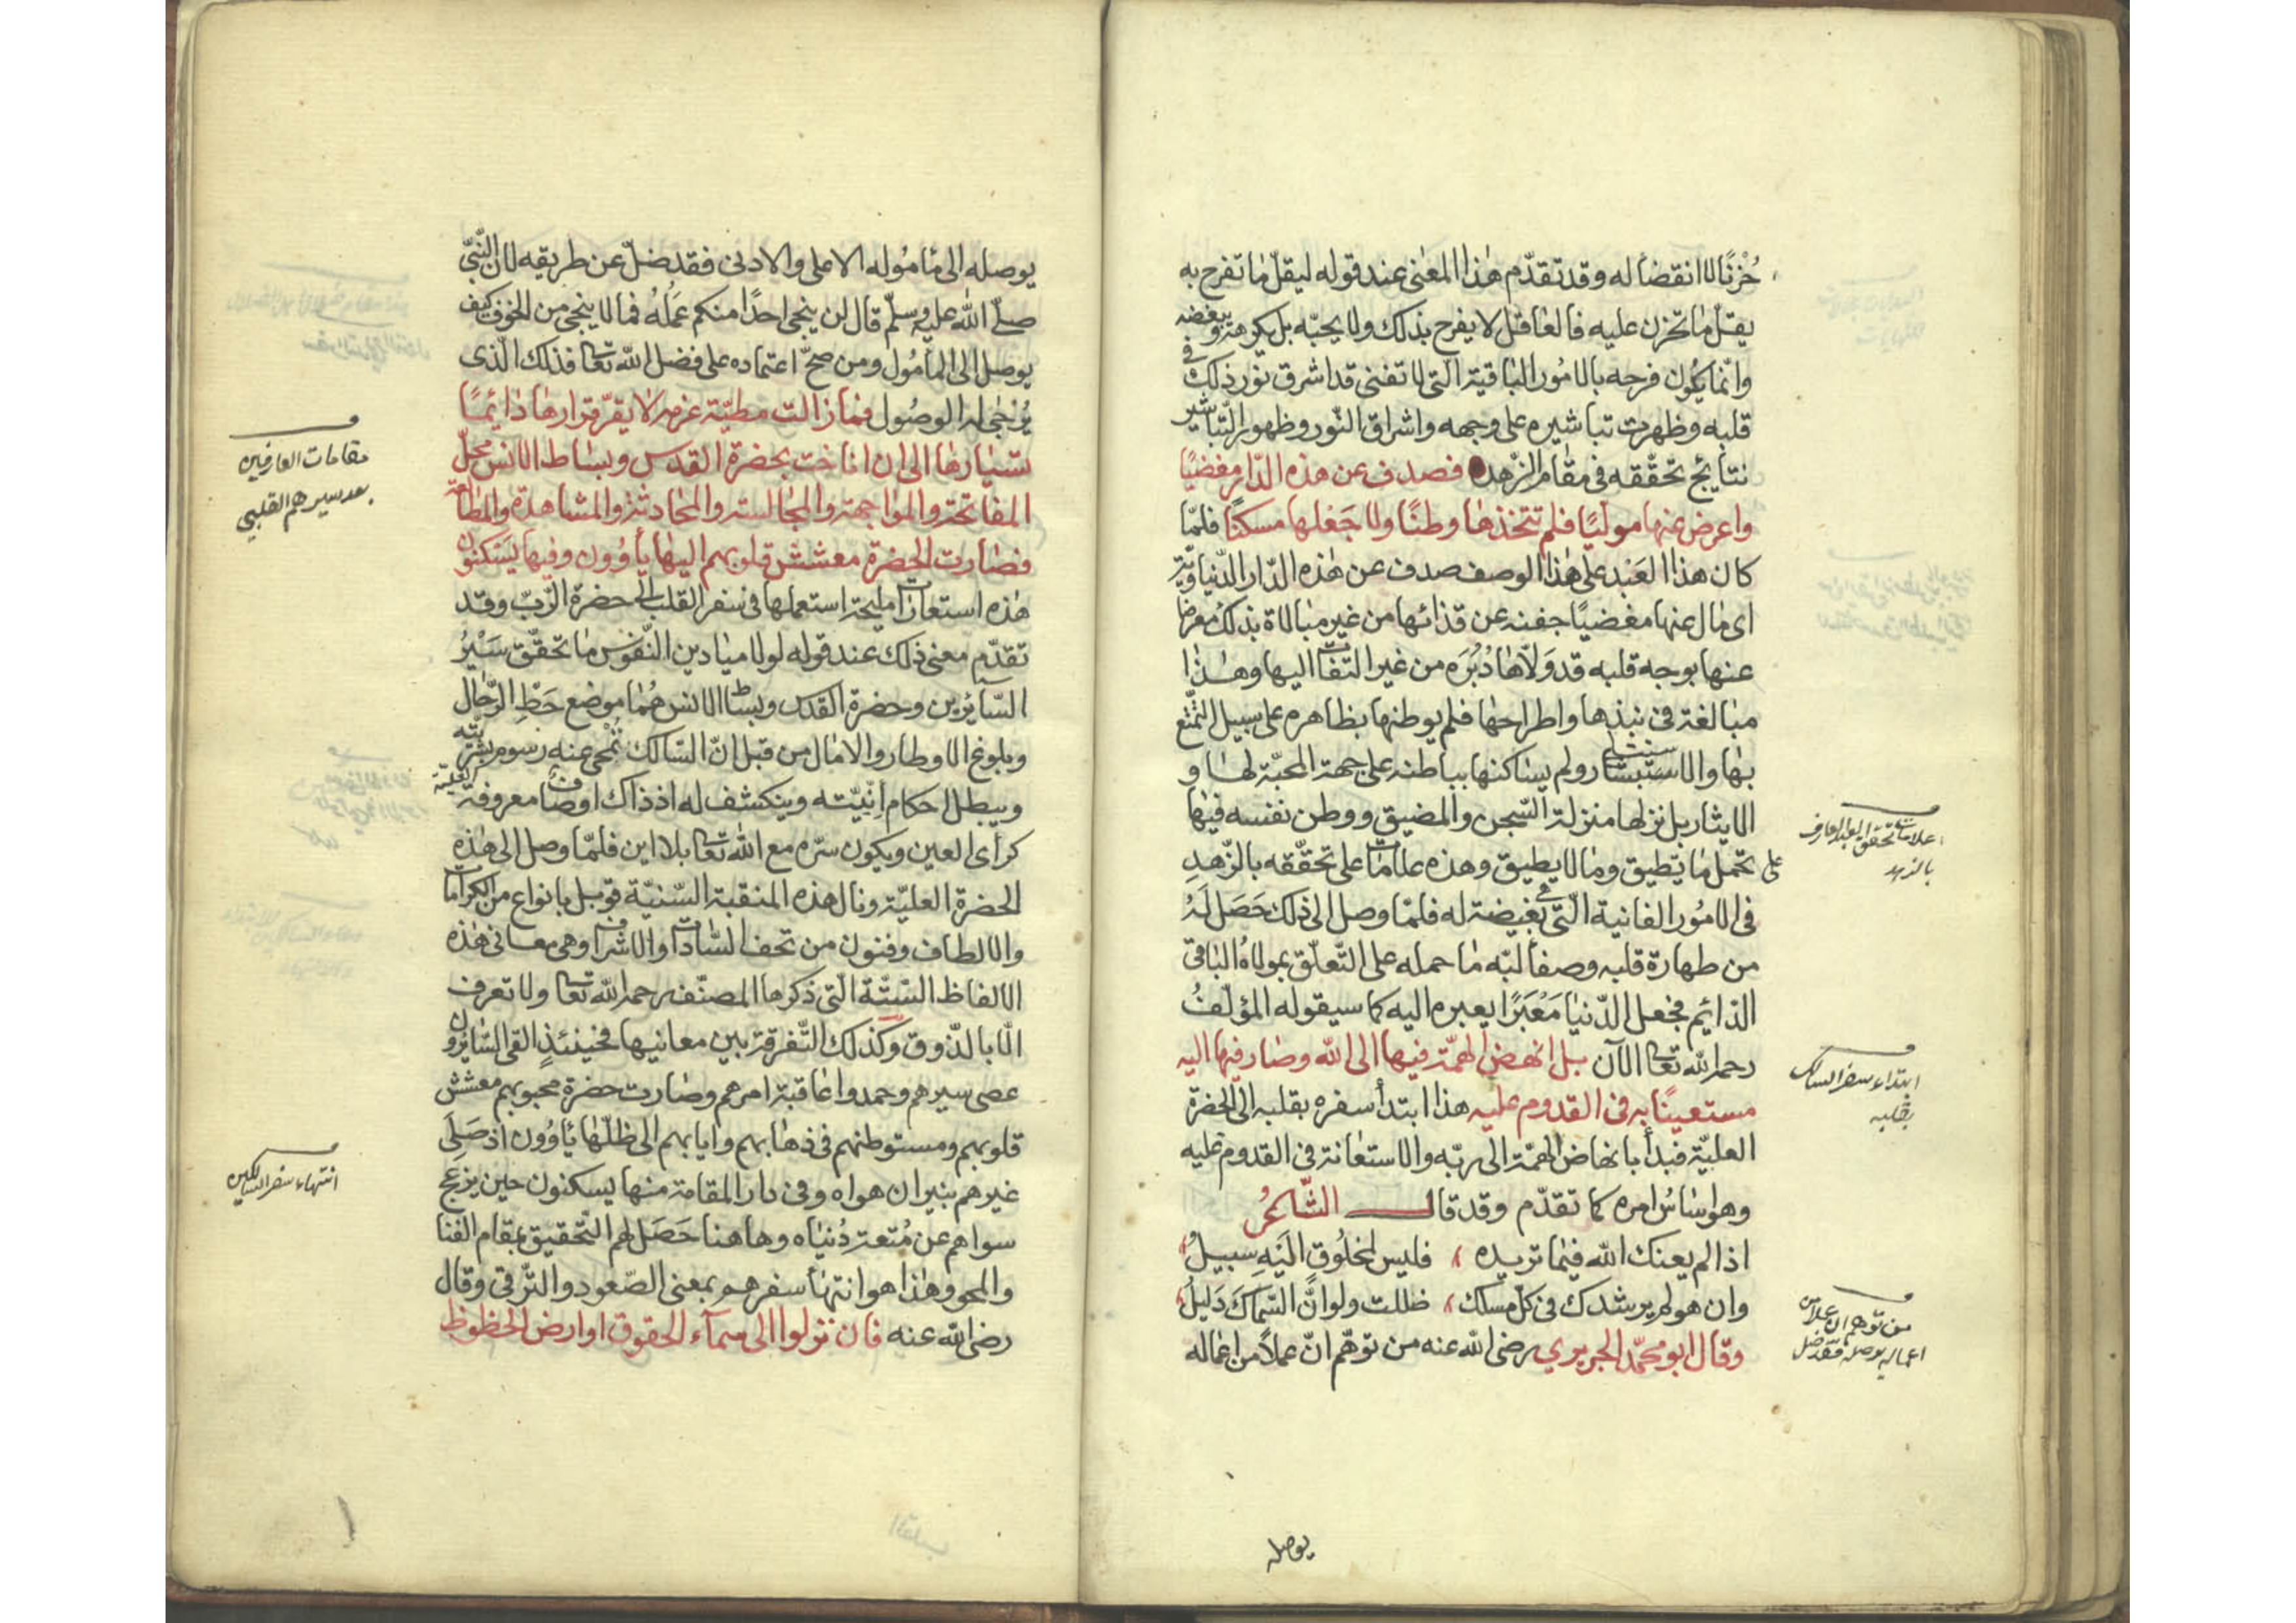 حُزْنًا لا انقضاء له وقد تقدّم هٰذا المعنى عند قوله ليقلّ ما تفرح به
يقلّ ما تحزن عليه فالعاقل لا يفرح بذلك ولا يحبّه بل يكرهه ويبغضه
وانّما يكون فرحه بالامُور الباقية الّتى لا تفنى قد اشرق نور ذلك فى
قلبه وظهرت تباشيره على وجهه واشراق النّور وظهور التّباشير
نتايج تحقّقه فى مقام الزّهد فصدف عن هذه الدّار مغضيًا
واعرض عنها موليًا فلم تتخذها وطنًا ولا جَعَلها مسكنًا فلمّا
كان هذا العَبْد على هٰذا الوصف صدف عن هٰذه الدّار الدّنياويّة
اى مٰال عنها مغضيًا جفنه عن قذائها من غير مبٰالاة بذلك مُعرضا
عنها بوجه قلبه قد وَلّاهٰا دُبُرَه من غير التفات اليها وهٰذا
مبٰالغة فى نبذها واطراحهٰا فلم يوطنها بظاهره على سبيل التمتّع
بهٰا والاستبشار ولم يسٰاكنها بباطنه على جهة المحبّة لهٰا و
الايثار بل نزلها منزلة السّجن والمضيق ووطن نفسه فيهٰا
على تحمل مٰا يطيق ومٰا لا يطيق وهذه علامات على تحقّقه بالزّهدِ
فى الامُور الفانية الّتى هى بغيضة له فلمّا وصل الى ذلك حَصَل لَهُ
من طهارة قلبه وصفاء لبّه مٰا حمله على التّعلّق بمولاهُ البٰاقى
الدّائم فجعل الدّنيٰا مَعْبَرًا يعبره اليه كما سيقوله المؤلّفُ
رحمه اللّه تعالى الآن بل انهض الهمّة فيها الى اللّه وصٰار فيها اليه
مستعينًا به فى القدوم عليه هذا ابتدأ سفره بقلبه الى الحضرة
العليّة فبدأ بانهاض الهمّة الى ربّه والاستعٰانة فى القدوم عليه
وهو اسٰاسُ امره كما تقدّم وقد قال الشّاعرُ
اذا لم يعنك اللّه فيمٰا تريده فليس لمخلُوق الَيْهِ سبيلُ
وان هو لم يرشدك فى كلّ مسلك ضللت ولو انّ السّماك دَليلُ
وقال ابو محمّد الجريري رضى اللّه عنه من توهّم انّ عملاً من اعماله
علامات تحقق العبد العارف
بالزهد
ابتداء سفر السالك
بقلبه
من توهم ان عملا من
اعماله يوصله فقد ضل
يوصله
يوصله الى مٰاموُله الاعلى والادنى فقد ضلّ عن طريقه لان النّبىّ
صلّى اللّه عليه وسلّم قال لن ينجى احدًا منكم عَمَلُهُ فما لا ينجى من الخوف كيف
يوصل الى المأمُول ومن صحّ اعتماده على فضل اللّه تعالى فذلك الّذى
يُرْجٰى له الوصُول فمٰا زالت مطيّة عزمه لا يقرّ قرارهٰا دٰائمًا
تسْيٰارهٰا الى ان اناخت بحضرة القدس وبسٰاط الانس محلّ
المفاتحة والموٰاجهة والمجٰالسة والمحٰادثة والمشاهدة والمطالعة
فصٰارت الحضرة معشش قلوبهم اليها يأوُون وفيها يسكنون
هٰذه استعارات مليحة استعملها فى سفر القلب الى حضرة الرّبّ وقد
تقدّم معنى ذلك عند قوله لولا ميٰادين النّفوس مٰا تحقّق سَيْرُ
السّائرين وحضرة القدس وبساط الانس هُمٰا موضع حَطّ الرّحٰال
وبلوغ الاوطار والامٰال من قبل انّ السّالك تُمْحى عنه رسوم بشريّته
ويبطل احكام انّيّته وينكشف له اذ ذاك اوصاف معروفه العليّة
كرأى العين ويكون سّره مع اللّه تعالى بلا اين فلمّا وصل الى هٰذه
الحضرة العليّة ونال هذه المنقبة السّنيّة قوبل بانواع من الكرامات
والالطاف وفنون من تحف السّادات والاشراف وهى معانى هٰذه
الالفاظ السّتّة الّتى ذكرها المصنّف رحمه اللّه تعالى ولا تعرف
الّا بالذّوق وكذلك التّفرقة بين معانيها فحينئذٍ القى السّائرون
عصى سيرهم وحمدوا عٰاقبة امرهم وصٰارت حضرة محبوبهم معشش
قلوبهم ومستوطنهم فى ذهابهم وايابهم الى ظلّهٰا يٰأوُون اذ صَلِىَ
غيرهم بنيران هواه وفى دار المقامة منها يسكنون حين يزعج
سواهم عن مُتعة دُنيٰاه وهاهنا حَصَل لهم التّحقيق بمقام الفنا
والمحو وهٰذا هو انتهٰأ سفرهم بمعنى الصّعود والتّرقى وقال
رضى اللّه عنه فان نزلوا الى سمآء الحقوق او ارض الحظوظ
مقامات العارفين
بعد سيرهم القلبى
انتهاء سفر السالكين